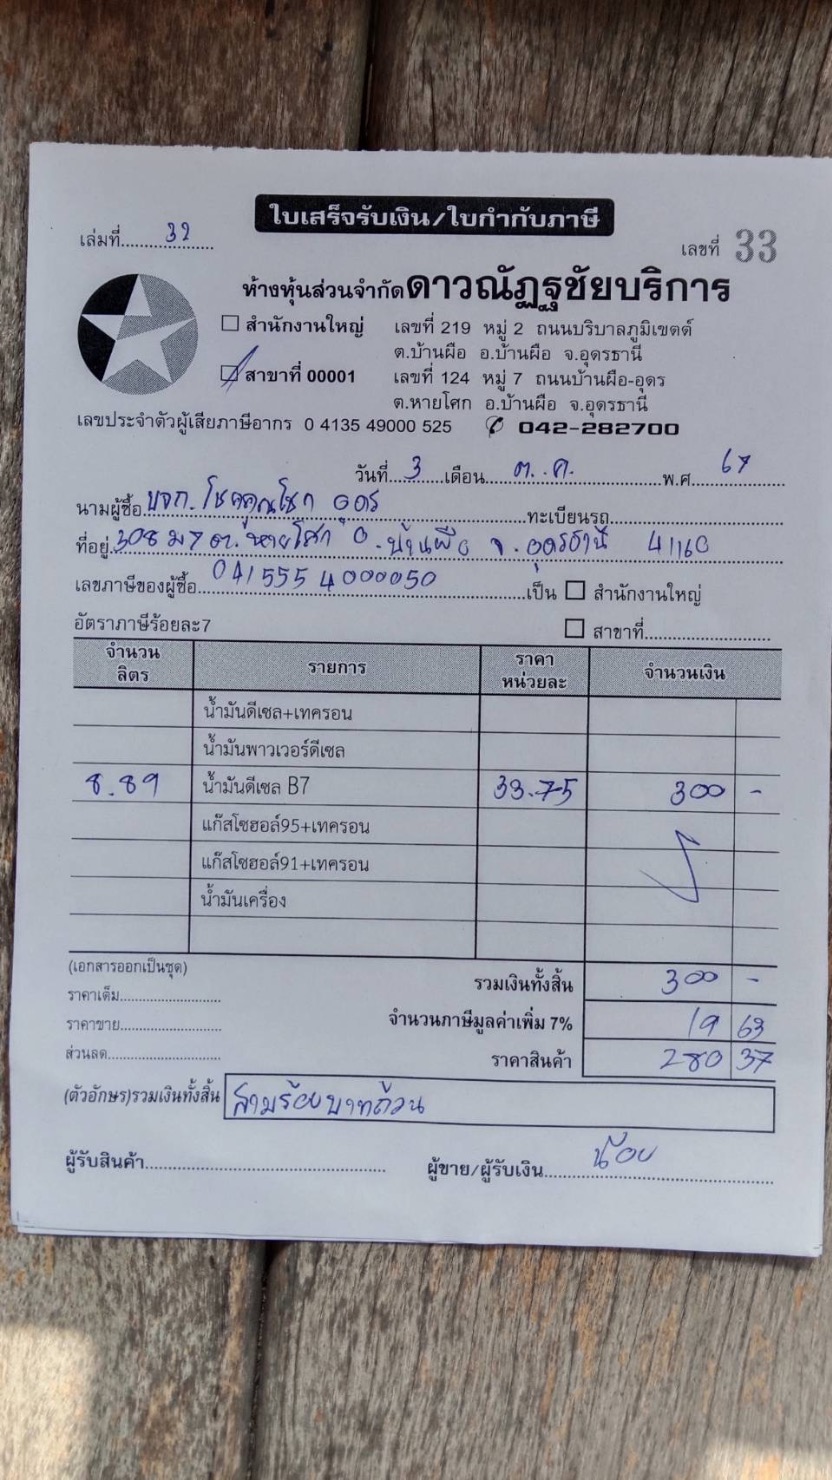 ใบเสร็จรับเงิน/ใบกำกับภาษี
เล่มที่ 32
เลขที่ 33
ห้างหุ้นส่วนจำกัดดาวณัฏฐชัยบริการ
สำนักงานใหญ่ เลขที่ 219 หมู่ 2 ถนนบริบาลภูมิเขตต์
ต.บ้านผือ อ.บ้านผือ จ.อุดรธานี
สาขาที่ 00001 เลขที่ 124 หมู่ 7 ถนนบ้านผือ-อุดร
ต.หายโศก อ.บ้านผือ จ.อุดรธานี
เลขประจำตัวผู้เสียภาษีอากร 0 4135 49000 525 042-282700
วันที่ 3 เดือน ต.ค. พ.ศ. 67
นามผู้ซื้อ บจก. โชคคูณโชค อุดร ทะเบียนรถ
ที่อยู่ 308 ม 7 ต. หายโศก อ. บ้านผือ จ. อุดรธานี 41160
เลขภาษีของผู้ซื้อ 0415554000050 เป็น สำนักงานใหญ่
อัตราภาษีร้อยละ7 สาขาที่
จำนวนลิตร รายการ ราคาหน่วยละ จำนวนเงิน
น้ำมันดีเซล+เทครอน
น้ำมันพาวเวอร์ดีเซล
8.89 น้ำมันดีเซล B7 33.75 300 -
แก๊สโซฮอล์95+เทครอน
แก๊สโซฮอล์91+เทครอน
น้ำมันเครื่อง
(เอกสารออกเป็นชุด)
รวมเงินทั้งสิ้น 300 -
ราคาเต็ม
ราคาขาย จำนวนภาษีมูลค่าเพิ่ม 7% 19 63
ส่วนลด ราคาสินค้า 280 37
(ตัวอักษร)รวมเงินทั้งสิ้น สามร้อยบาทถ้วน
ผู้รับสินค้า ผู้ขาย/ผู้รับเงิน น้อย